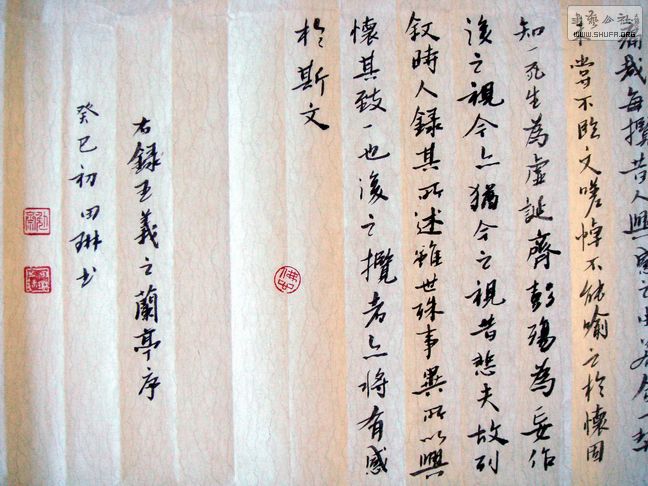 痛哉每攬昔人興感之由若合一契
未嘗不臨文嗟悼不能喻之於懷固
知一死生為虛誕齊彭殤為妄作
後之視今亦猶今之視昔悲夫故列
敘時人錄其所述雖世殊事異所以興
懷其致一也後之攬者亦將有感
於斯文
右錄王羲之蘭亭序
癸巳初田琳书
WWW.SHUFR.ORG